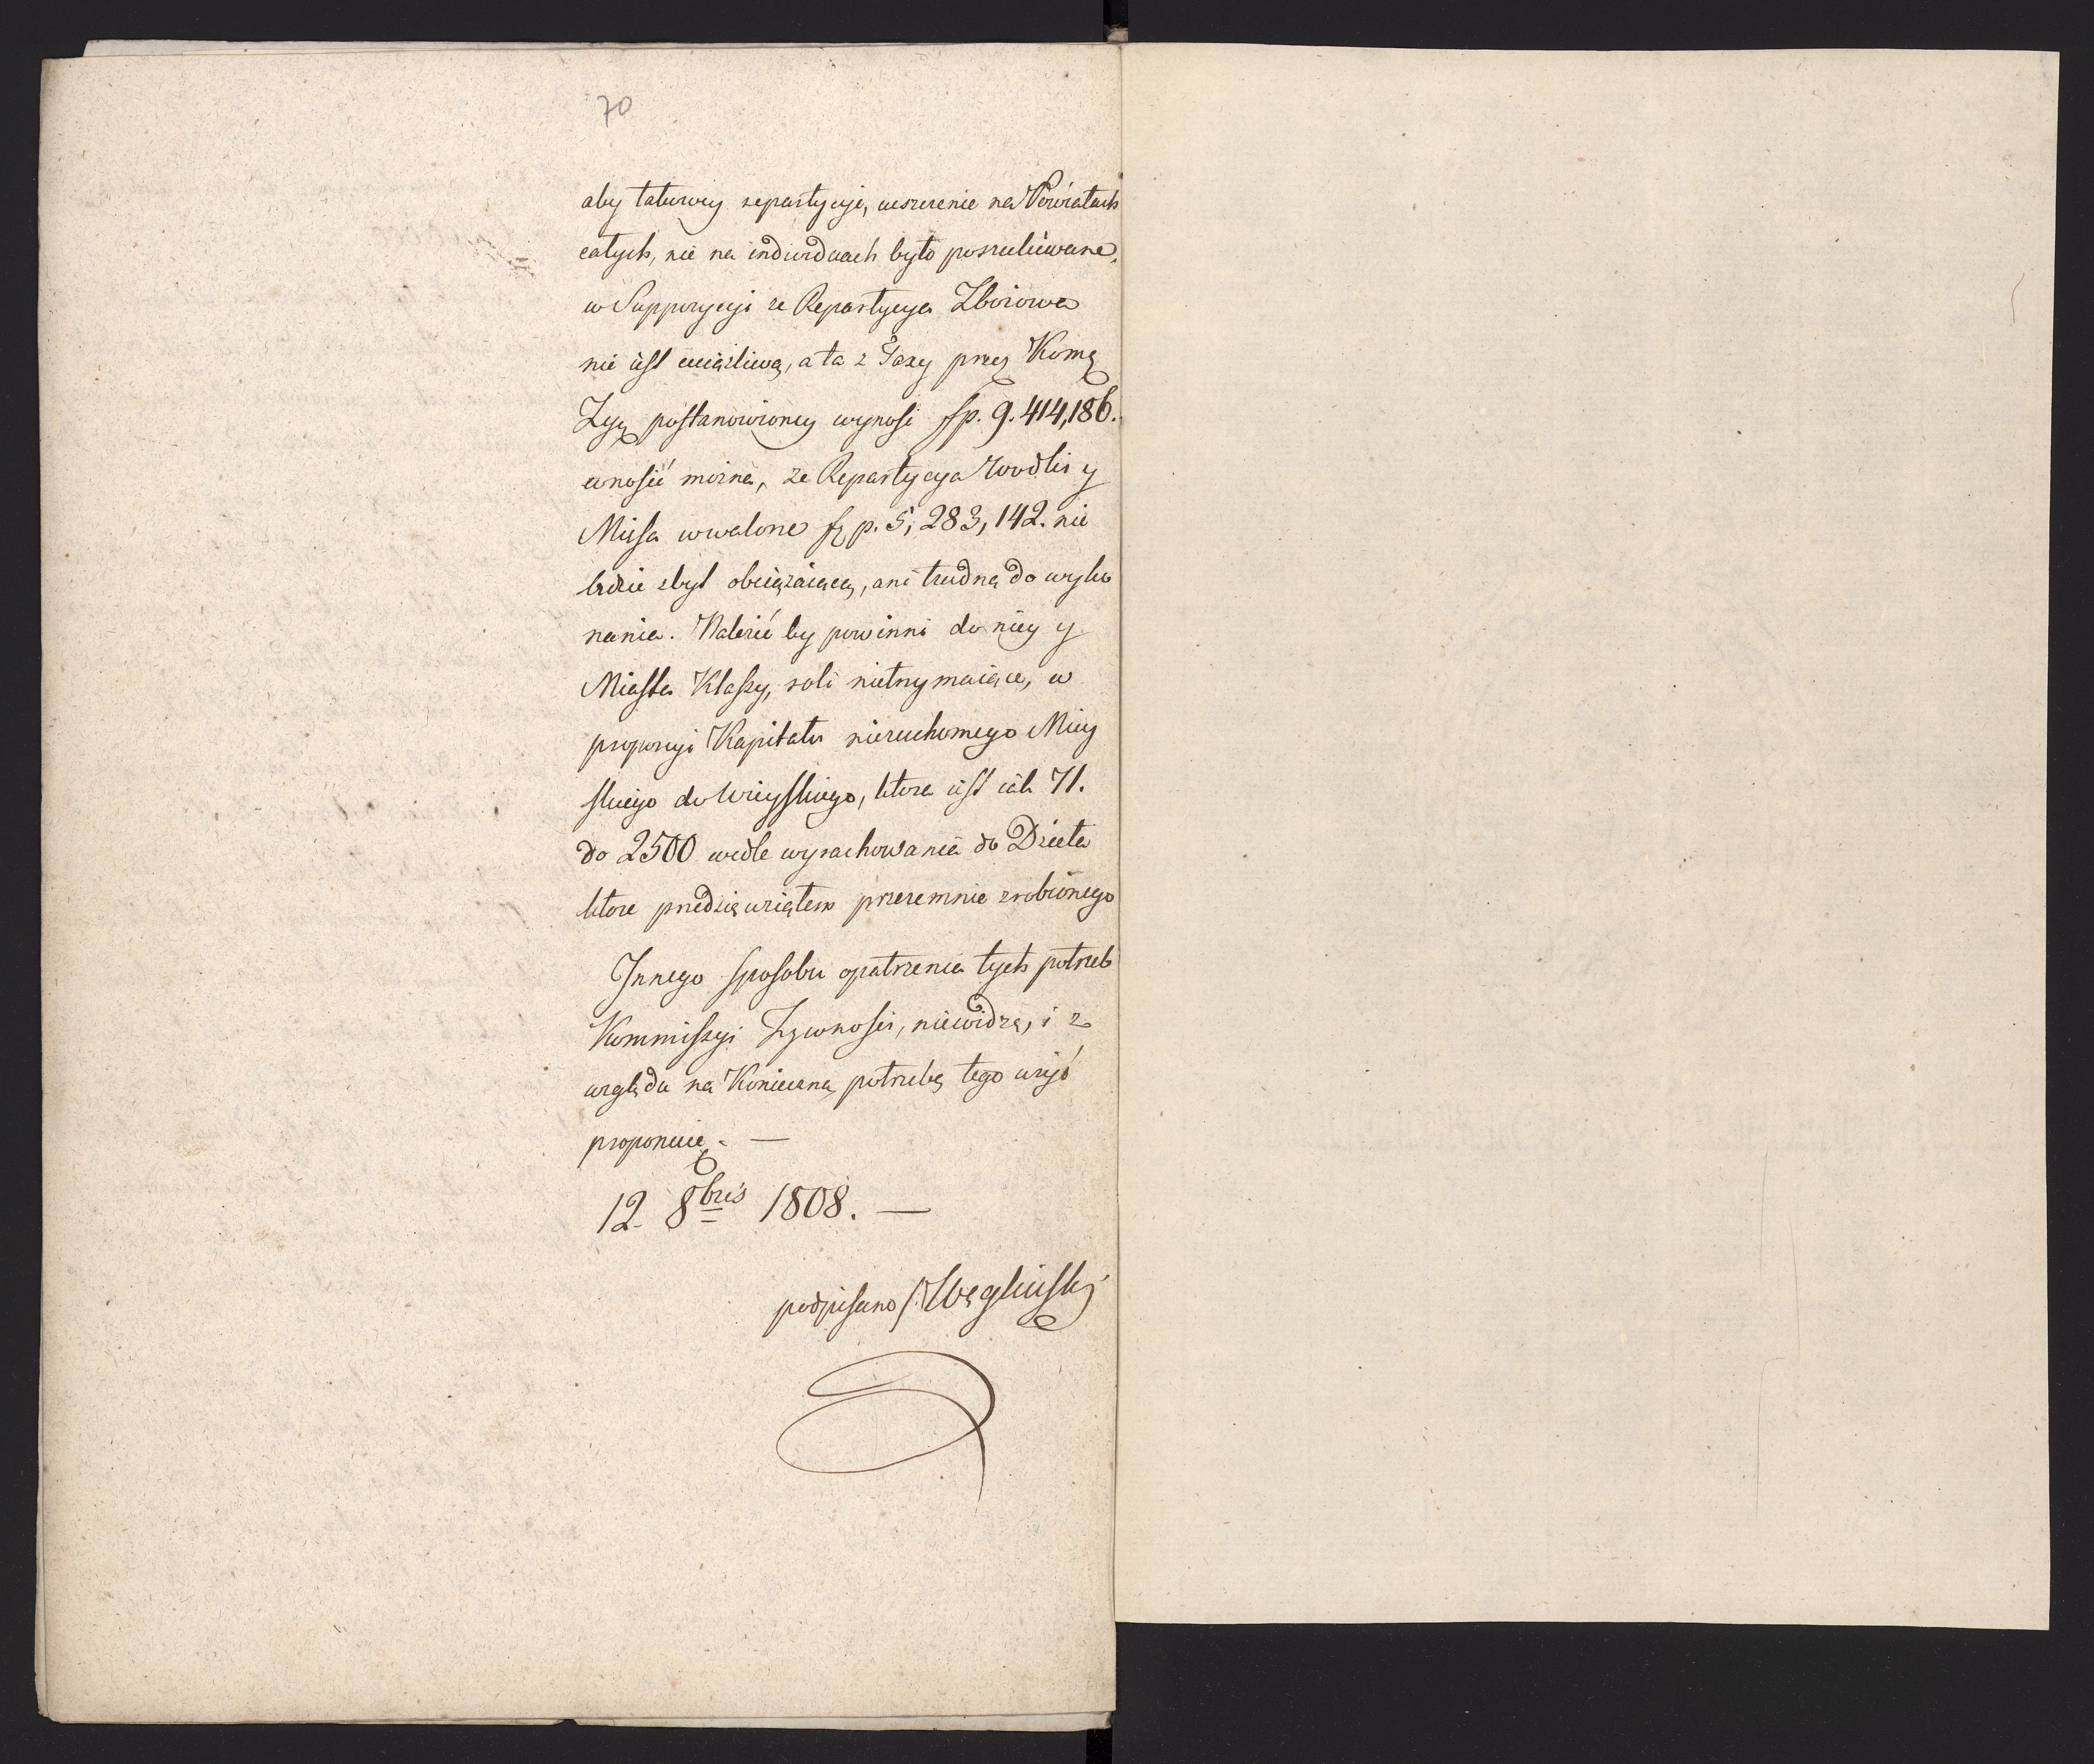 70
aby takowey repartycyi, uiszczenie na Powiatach
całych, nie na indiwiduach było poszukiwane,
w Suppozycyi że Repartycya Zbożowa
nie iest uciążliwą, a ta z Taxy przez Komę
Żyw postanowioney wynosi fp. 9.414,186.
wnosić można, że Repartycya Wodki y
Mięsa wwalone fp. 5,283,142. nie
będzie zbyt obciążaiącą, ani trudną do wyko
nania. Należeć by powinni do niey y
Miasta Klassy, soli nietrzymaiące, w
proporcyi Kapitału nieruchomego Miey
skiego do Wieyskiego, ktora iest iak 71.
do 2500 wedle wyrachowania do Dzieła
ktore przedsięwziąłem przezemnie zrobionego
Innego sposobu opatrzenia tych potrzeb
Kommissyi Żywności, niewidzę, i z
względu na Konieczną potrzebę tego użyć
proponuię. —
12. 8bris 1808. —
podpisano Węgliński